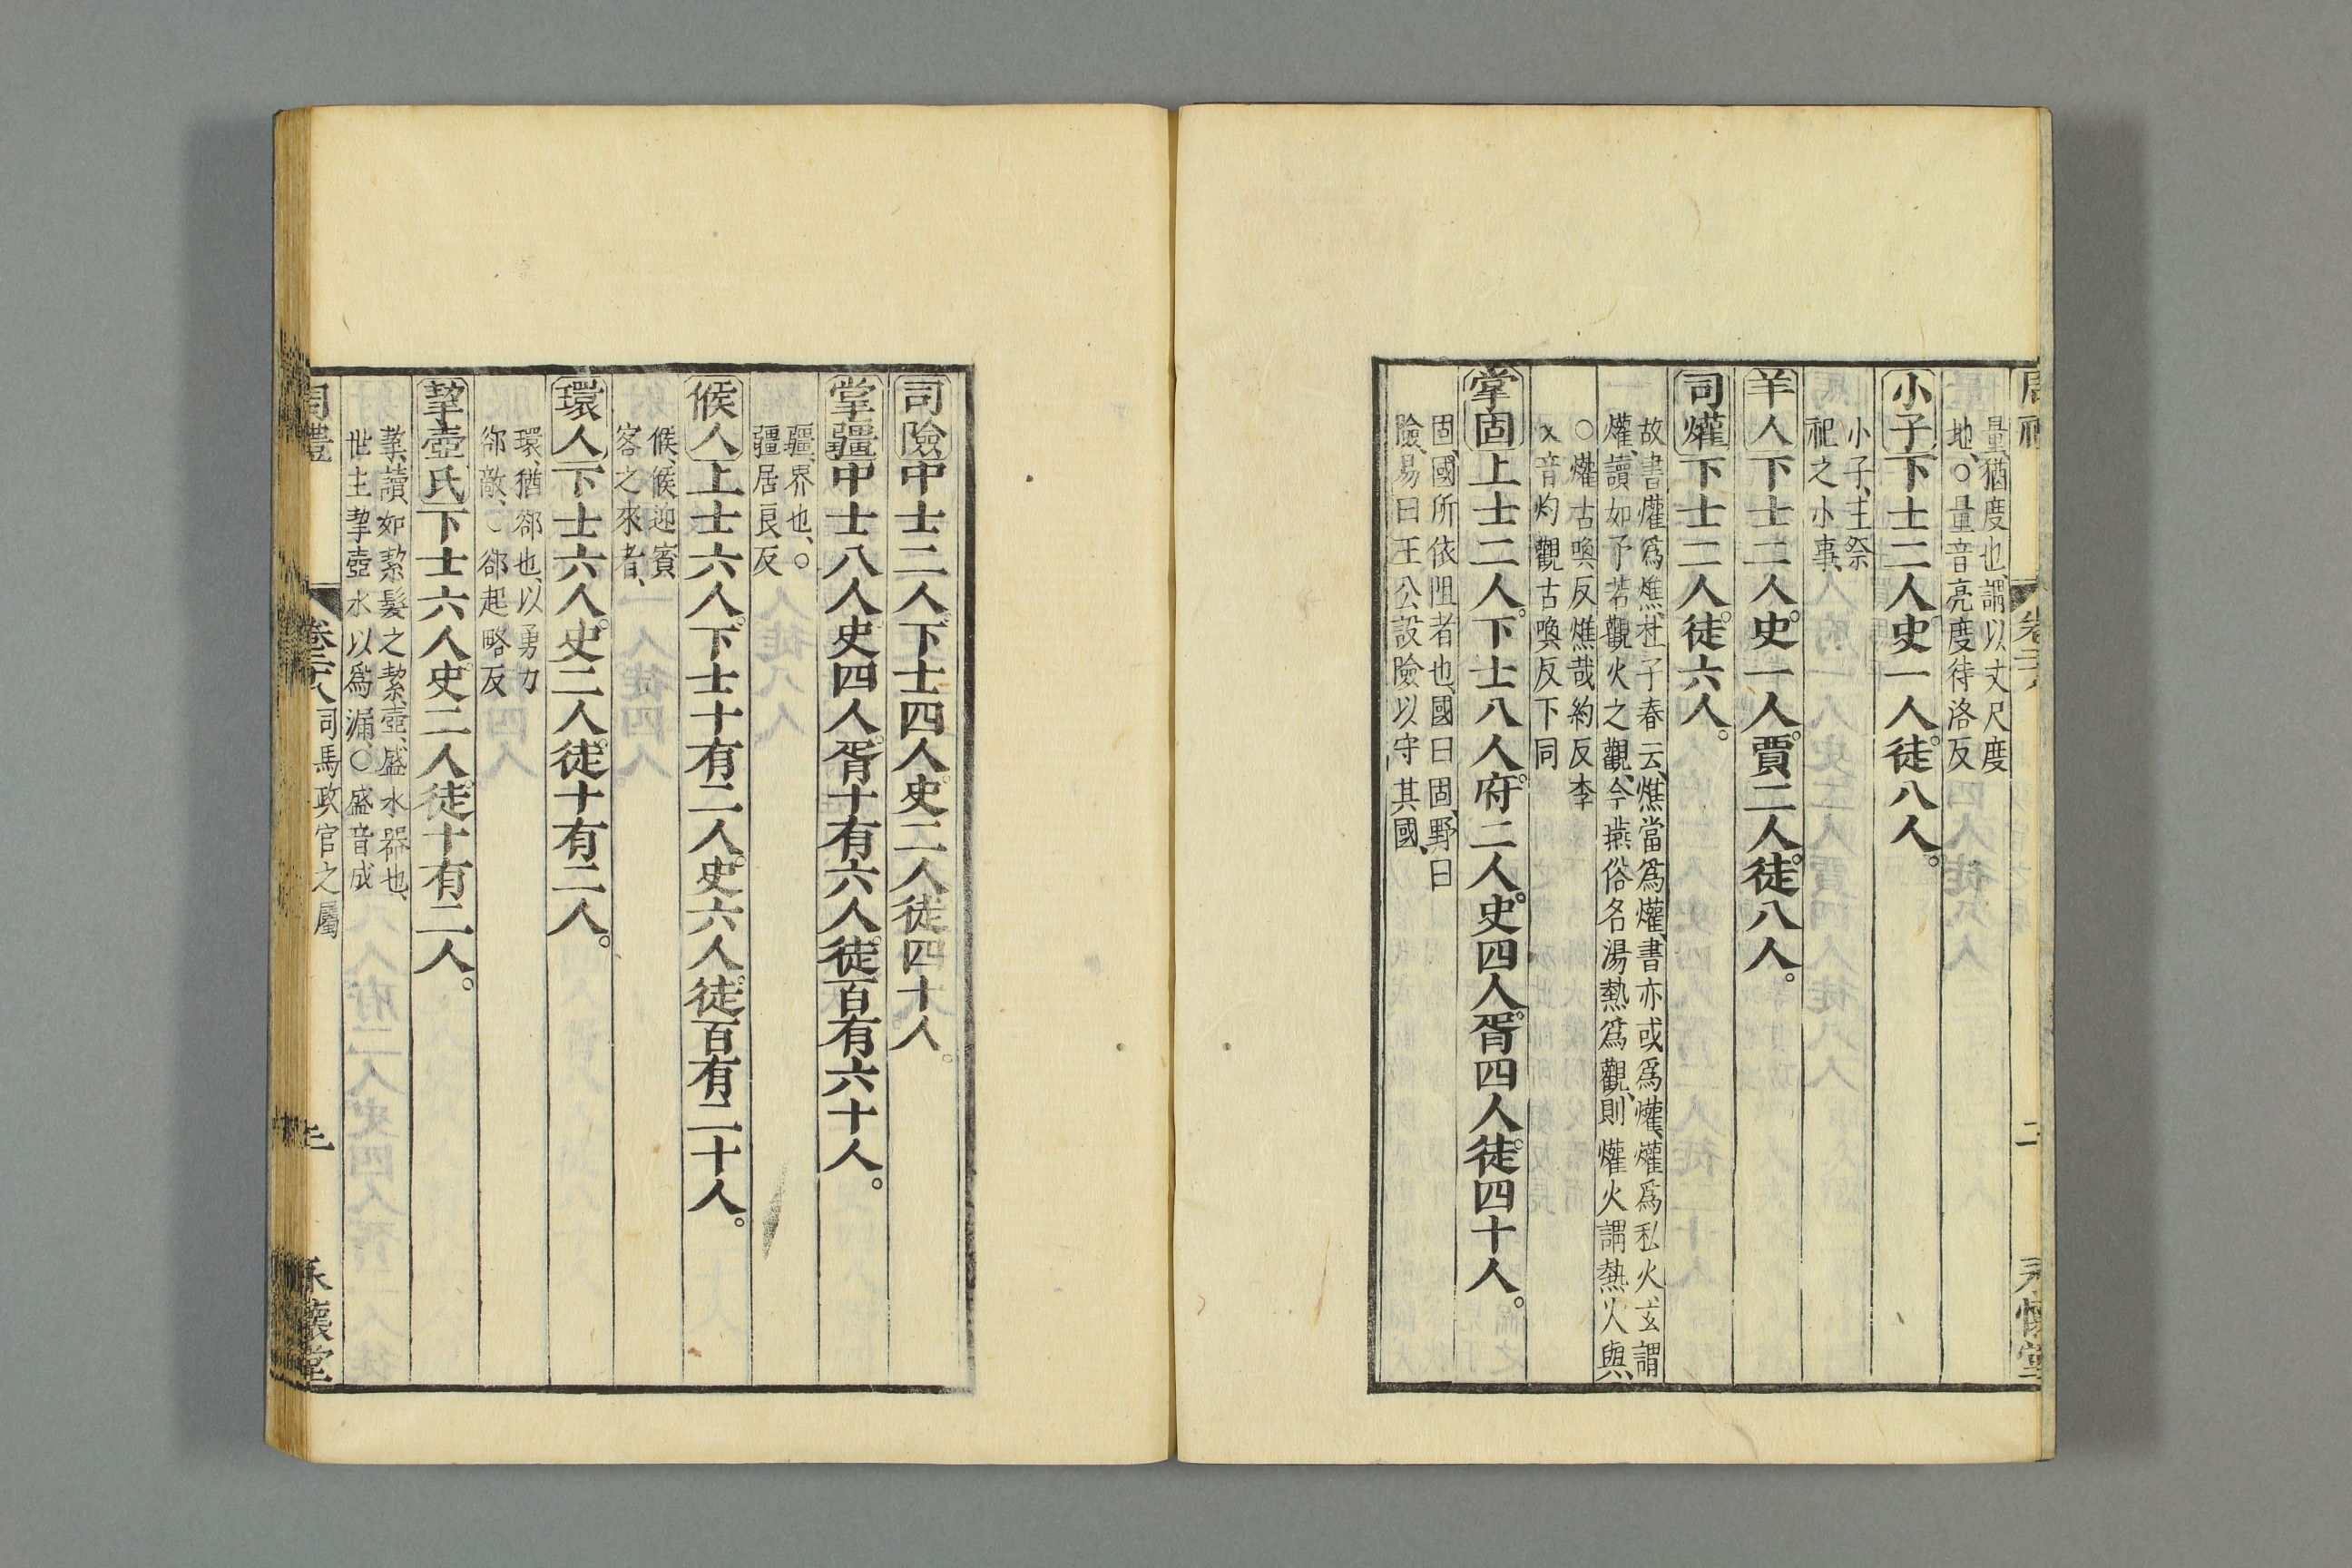 量、猶度也、謂以丈尺度
地、○量音亮度待洛反
小子下士二人史一人。徒八人。
小子、主祭
祀之小事、
羊人下士二人。史一人。賈二人。徒八人。
司爟下士二人。徒六人。
故書爟爲燋、杜子春云、燋當爲爟、書亦或爲爟、爟爲私火、玄謂
爟、讀如予若觀火之觀、今燕俗名湯熱爲觀、則爟火謂熱火與、
○爟古喚反燋哉約反李
又音灼觀古喚反下同
掌固上士二人。下士八人。府二人。史四人。胥四人。徒四十人。
固、國所依阻者也、國曰固、野曰
險、易曰王公設險以守其國、
二
永懷堂
司險中士二人。下士四人。史二人。徒四十人。
掌疆中士八人。史四人。胥十有六人。徒百有六十人。
疆、界也、○
疆居良反
候人上士六人。下士十有二人。史六人。徒百有二十人。
候、候迎賓
客之來者、
環人下士六人。史二人。徒十有二人。
環、猶郤也、以勇力
郤敵、○郤起略反
挈壺氏下士六人。史二人。徒十有二人。
挈、讀如絜髮之絜、壺、盛水器也、
世主挈壺水以爲漏、○盛音成
周禮 卷二十八 司馬政官之屬 三 永懷堂